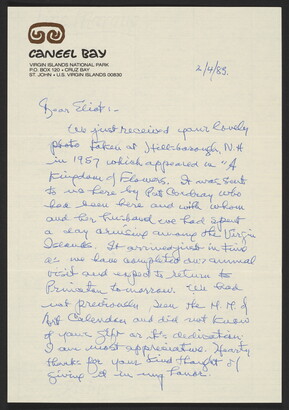 CANEEL BAY
VIRGIN ISLANDS NATIONAL PARK
P.O. BOX 120 • CRUZ BAY
ST. JOHN • U.S. VIRGIN ISLANDS 00830
2/4/83.
Dear Eliot:-
We just received your lovely
photo taken at Hillsborough, N.H
in 1957 which appeared in "A
Kingdom of Flowers. It was sent
to me here by Pat Cordray who
had been here and with whom
and her husband we had spent
a day cruising among the Virgin
Islands. It arrived just in time
as we have completed our annual
visit and expect to return to
Princeton tomorrow. We had
not previously seen the M.M. of
Art Calendar and did not know
of your gift or its dedication.
I am most appreciative. Hearty
thanks for your kind thought of
giving it in my honor.